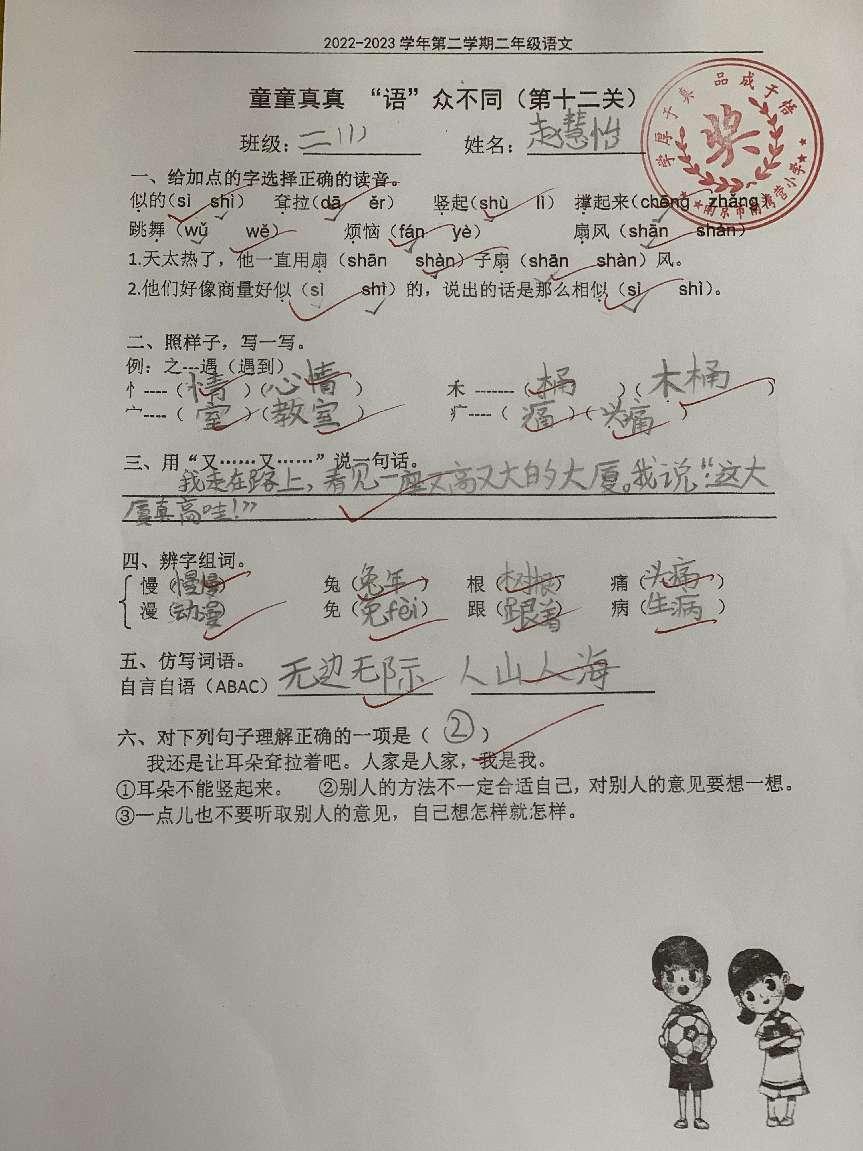 2022-2023 学年第二学期二年级语文
童童真真 “语”众不同（第十二关）
班级：二（1） 姓名：赵慧怡
学厚于真 品成于悟
奖
一、给加点的字选择正确的读音。
似的（sì shì） 耷拉（dā ěr） 竖起（shù lì） 撑起来（chēng zhǎng）
跳舞（wǔ wě） 烦恼（fán yè） 扇风（shān shàn）
1.天太热了，他一直用扇（shān shàn）子扇（shān shàn）风。
2.他们好像商量好似（sì shì）的，说出的话是那么相似（sì shì）。
二、照样子，写一写。
例：之---遇（遇到）
忄----（情）（心情） 禾 -------（桶）（木桶）
宀----（室）（教室） 疒----（痛）（头痛）
三、用“又……又……”说一句话。
我走在路上，看见一座又高又大的大厦。我说：“这大
厦真高哇！”
四、辨字组词。
慢（慢慢） 兔（兔年） 根（树根） 痛（头痛）
漫（动漫） 免（免fèi） 跟（跟着） 病（生病）
五、仿写词语。
自言自语（ABAC） 无边无际 人山人海
六、对下列句子理解正确的一项是（ ② ）
我还是让耳朵耷拉着吧。人家是人家，我是我。
①耳朵不能竖起来。 ②别人的方法不一定合适自己，对别人的意见要想一想。
③一点儿也不要听取别人的意见，自己想怎样就怎样。